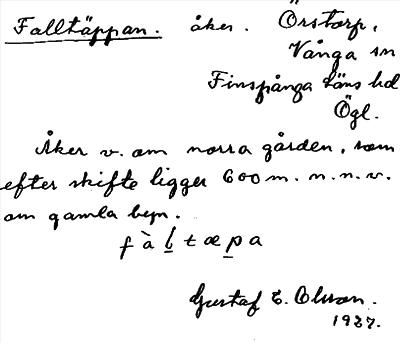 Falltäppan. åker. Örstorp,
Vånga sn
Finspånga läns hd
Ögl.
Åker v. om norra gården, som
efter skifte ligger 600 m. n.n.v.
om gamla byn.
f à l t æ p a
Gustaf E. Olsson.
1927.